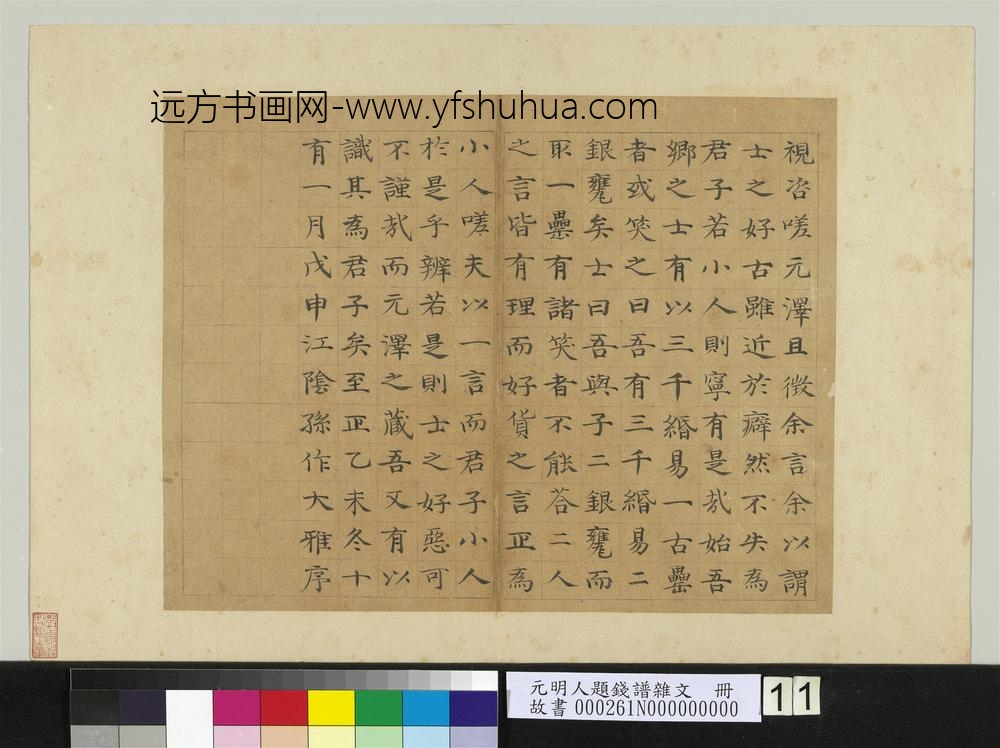 远方书画网-www.yfshuhua.com
視咨嗟元澤且徴余言余以謂
士之好古雖近於癖然不失為
君子若小人則寧有是㢤始吾
鄉之士有以三千緡易一古罍
者或笑之曰吾有三千緡易二
銀甕矣士曰吾與子二銀甕而
取一罍有諸笑者不能荅二人
之言皆有理而好貨之言正為
小人嗟夫以一言而君子小人
於是乎辨若是則士之好惡可
不謹㢤而元澤之藏吾又有以
識其為君子矣至正乙未冬十
有一月戊申江陰孫作大雅序
元明人題錢譜雜文 冊
故書 000261N000000000
11